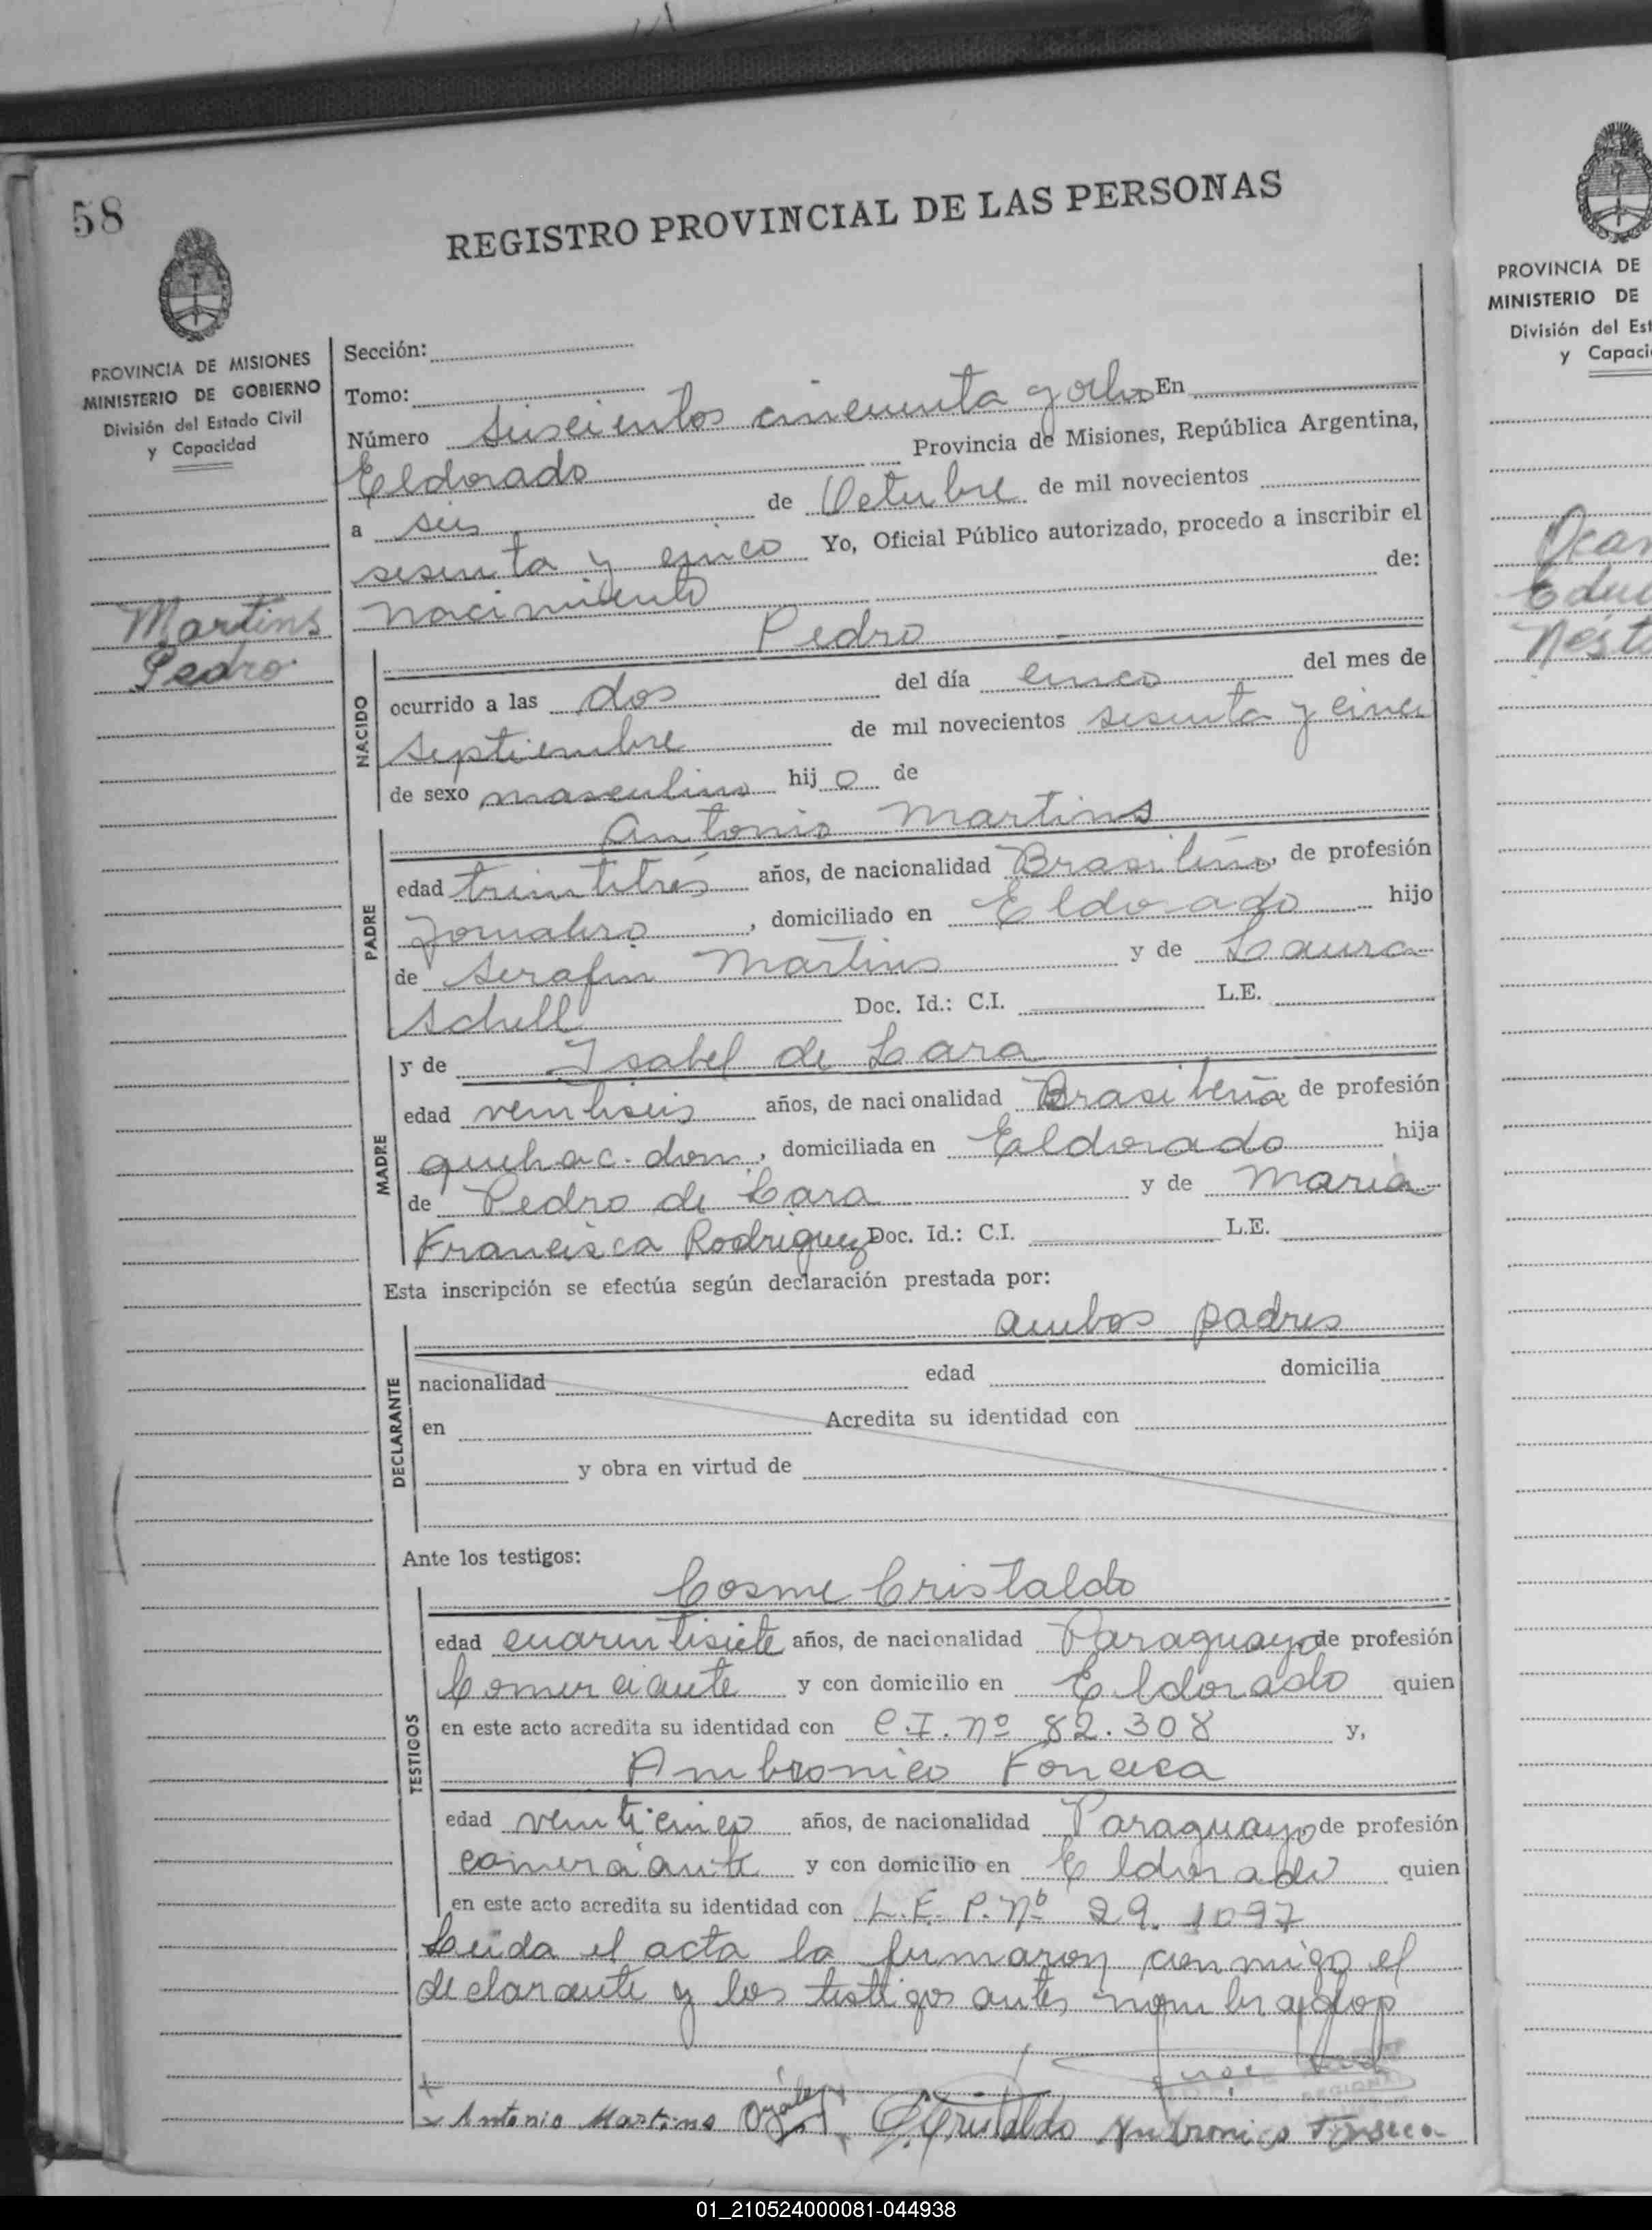 58
REGISTRO PROVINCIAL DE LAS PERSONAS
PROVINCIA DE MISIONES
MINISTERIO DE GOBIERNO
División del Estado Civil
y Capacidad
Martins
Pedro
Sección:
Tomo:
Número seiscientos cincuenta y ocho En
Eldorado Provincia de Misiones, República Argentina,
a seis de Octubre de mil novecientos
sesenta y cinco Yo, Oficial Público autorizado, procedo a inscribir el
nacimiento de:
NACIDO
Pedro
ocurrido a las dos del día cinco del mes de
septiembre de mil novecientos sesenta y cinco
de sexo masculino hijo de
PADRE
Antonio Martins
edad treintitrés años, de nacionalidad Brasileño, de profesión
Jornalero, domiciliado en Eldorado hijo
de Serafin Martins y de Laura
Schell Doc. Id.: C.I. L.E.
MADRE
y de Isabel de Lara
edad veintiseis años, de nacionalidad Brasileña de profesión
quehac. dom., domiciliada en Eldorado hija
de Pedro de Lara y de Maria
Francisca Rodriguez Doc. Id.: C.I. L.E.
Esta inscripción se efectúa según declaración prestada por:
DECLARANTE
ambos padres
nacionalidad edad domicilia
en Acredita su identidad con
y obra en virtud de
Ante los testigos:
TESTIGOS
Cosme Cristaldo
edad cuarentisiete años, de nacionalidad Paraguayo de profesión
Comerciante y con domicilio en Eldorado quien
en este acto acredita su identidad con C.I. nº 82.308 y,
Ambronico Fonseca
edad veinticinco años, de nacionalidad Paraguayo de profesión
comerciante y con domicilio en Eldorado quien
en este acto acredita su identidad con L.E. P. Nº 29.1097
Leida el acta la firmaron conmigo el
declarante y los testigos antes nombrados
Antonio Martins C. Cristaldo Ambronico Fonseca
PROVINCIA DE
MINISTERIO DE
División del Est
y Capaci
Edu
Nést
01_210524000081-044938